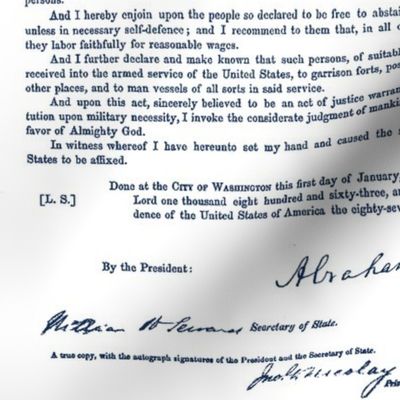 persons.
And I hereby enjoin upon the people so declared to be free to abstai
unless in necessary self-defence; and I recommend to them that, in all c
they labor faithfully for reasonable wages.
And I further declare and make known that such persons, of suitabl
received into the armed service of the United States, to garrison forts, pos
other places, and to man vessels of all sorts in said service.
And upon this act, sincerely believed to be an act of justice warran
tution upon military necessity, I invoke the considerate judgment of manki
favor of Almighty God.
In witness whereof I have hereunto set my hand and caused the s
States to be affixed.
Done at the CITY OF WASHINGTON this first day of January,
[L. S.] Lord one thousand eight hundred and sixty-three, a
dence of the United States of America the eighty-sev
By the President: Abraha
William H Seward Secretary of State.
A true copy, with the autograph signatures of the President and the Secretary of State.
Jno. G. Nicolay
Pri